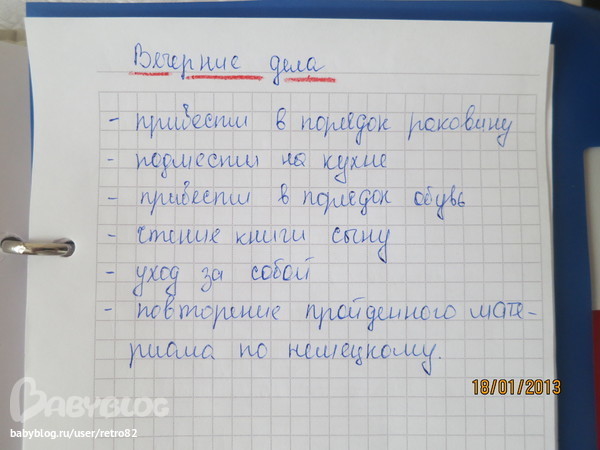 Вечерние дела
- привести в порядок раковину
- подмести на кухне
- привести в порядок обувь
- чтение книги сыну
- уход за собой
- повторение пройденного мате-
риала по немецкому.
18/01/2013
BABYBLOG
babyblog.ru/user/retro82